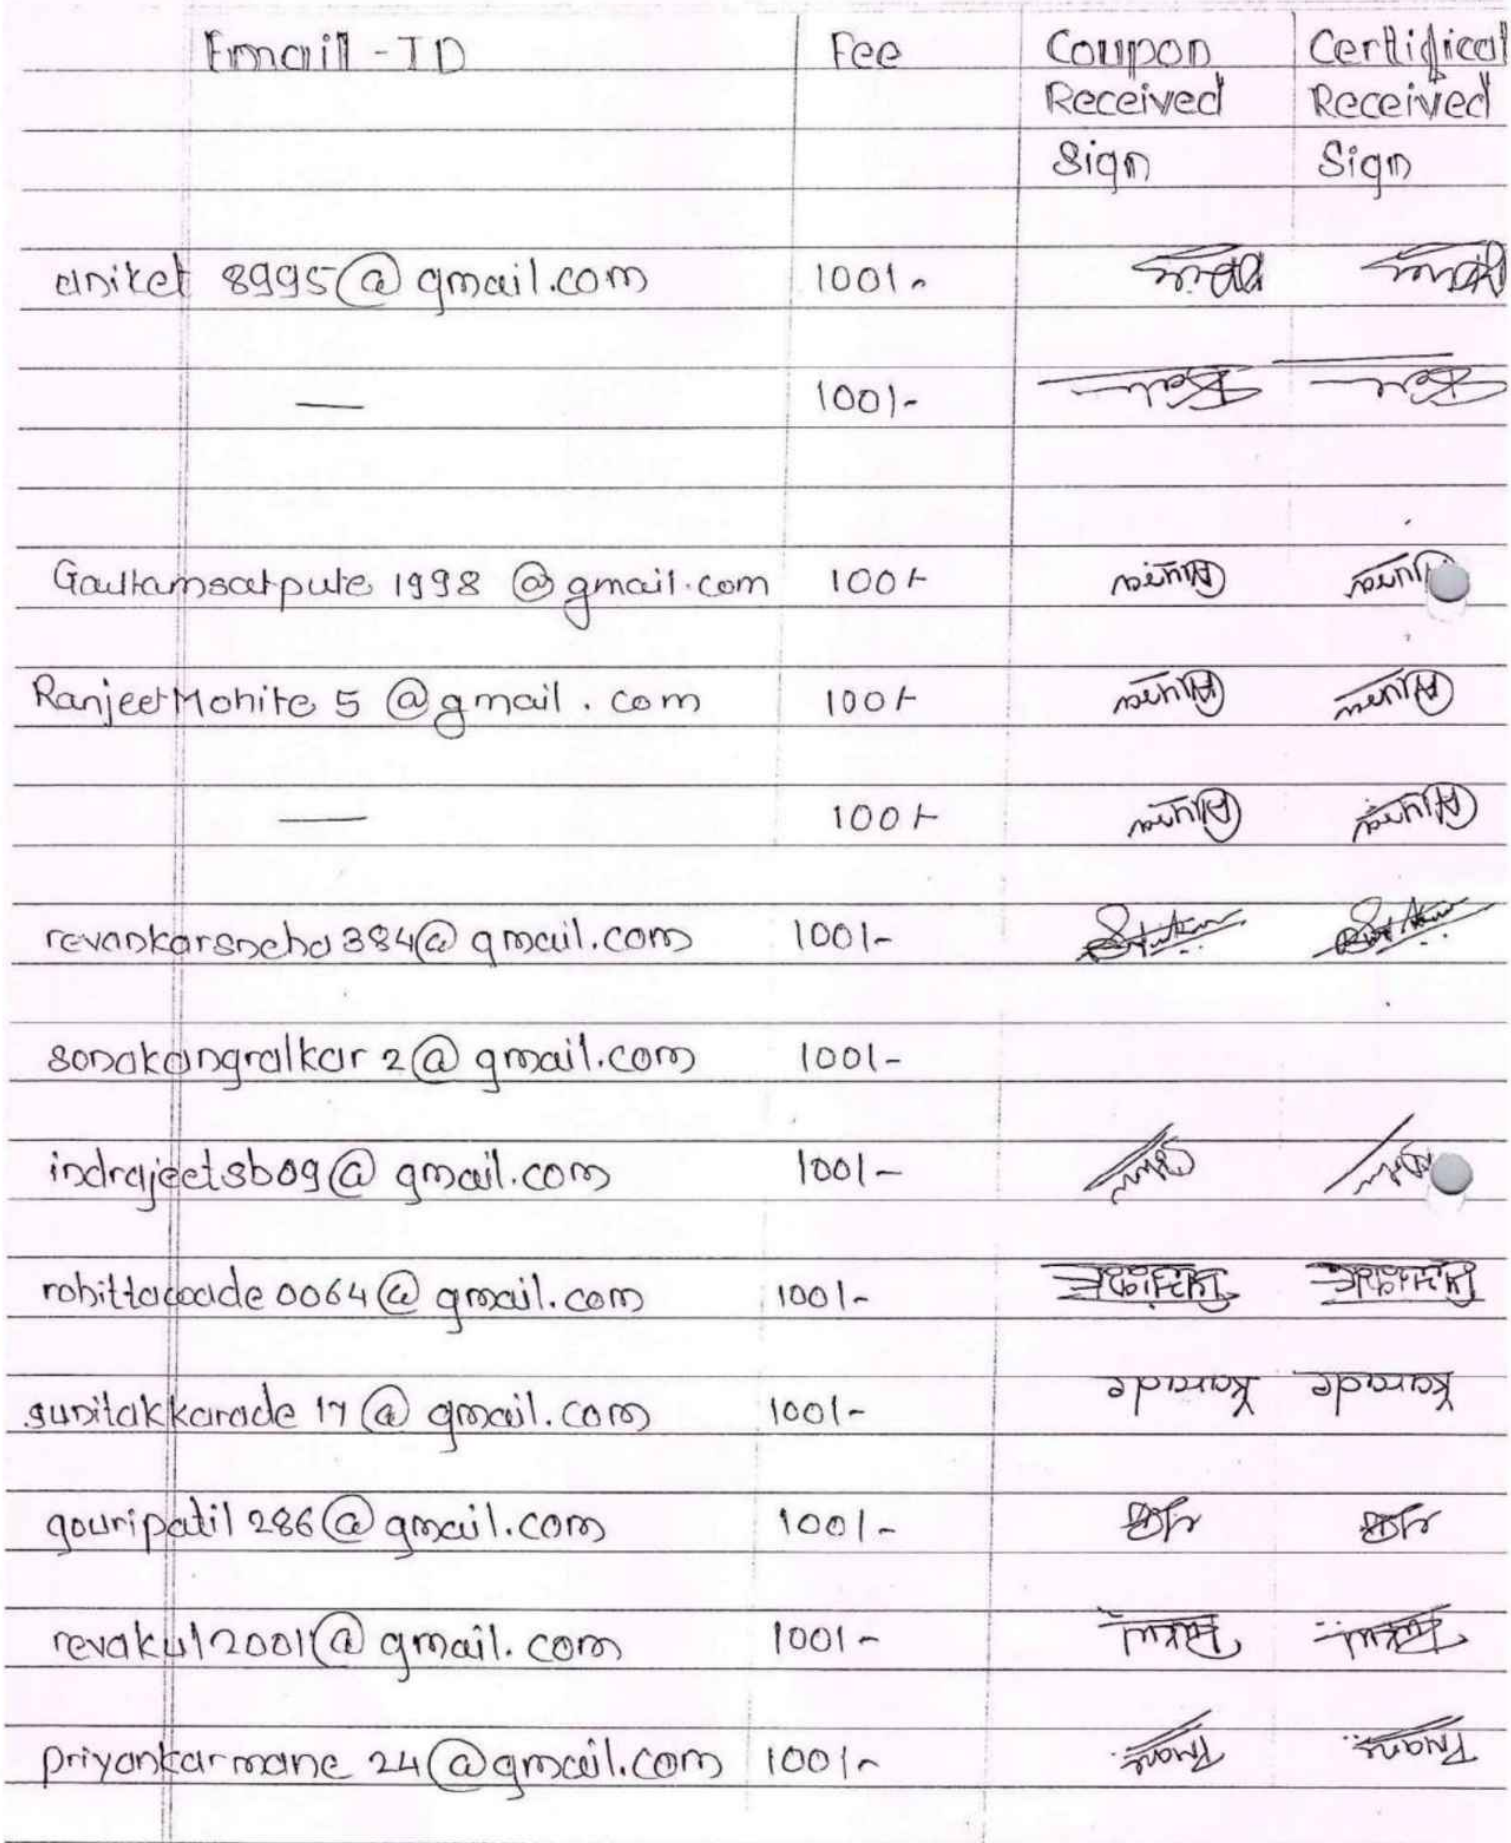 Email-ID Fee Coupon Certifical
Received Received
Sign Sign
aniket 8995@gmail.com 100/-
— 100/-
Gautamsatpute 1998 @gmail.com 100/-
RanjeetMohite 5 @gmail.com 100/-
— 100/-
revankarsneha384@gmail.com 100/-
sonakangralkar2@gmail.com 100/-
indrajeetsb09@gmail.com 100/-
0064@gmail.com 100/-
sunitakkarade17@gmail.com 100/- Karade Karade
gouripatil286@gmail.com 100/-
revakul2001@gmail.com 100/-
priyankarmane24@gmail.com 100/- Pmane Pmane